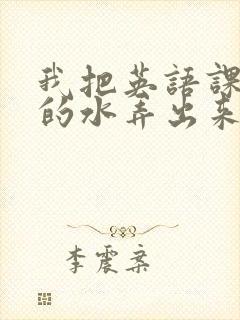 我把英語課
的水弄出來
李震案